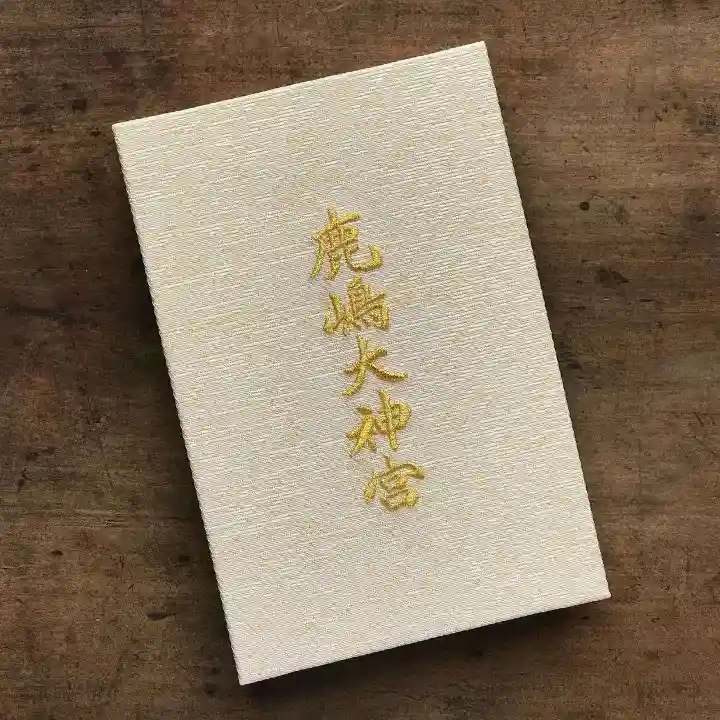 鹿嶋大神宮